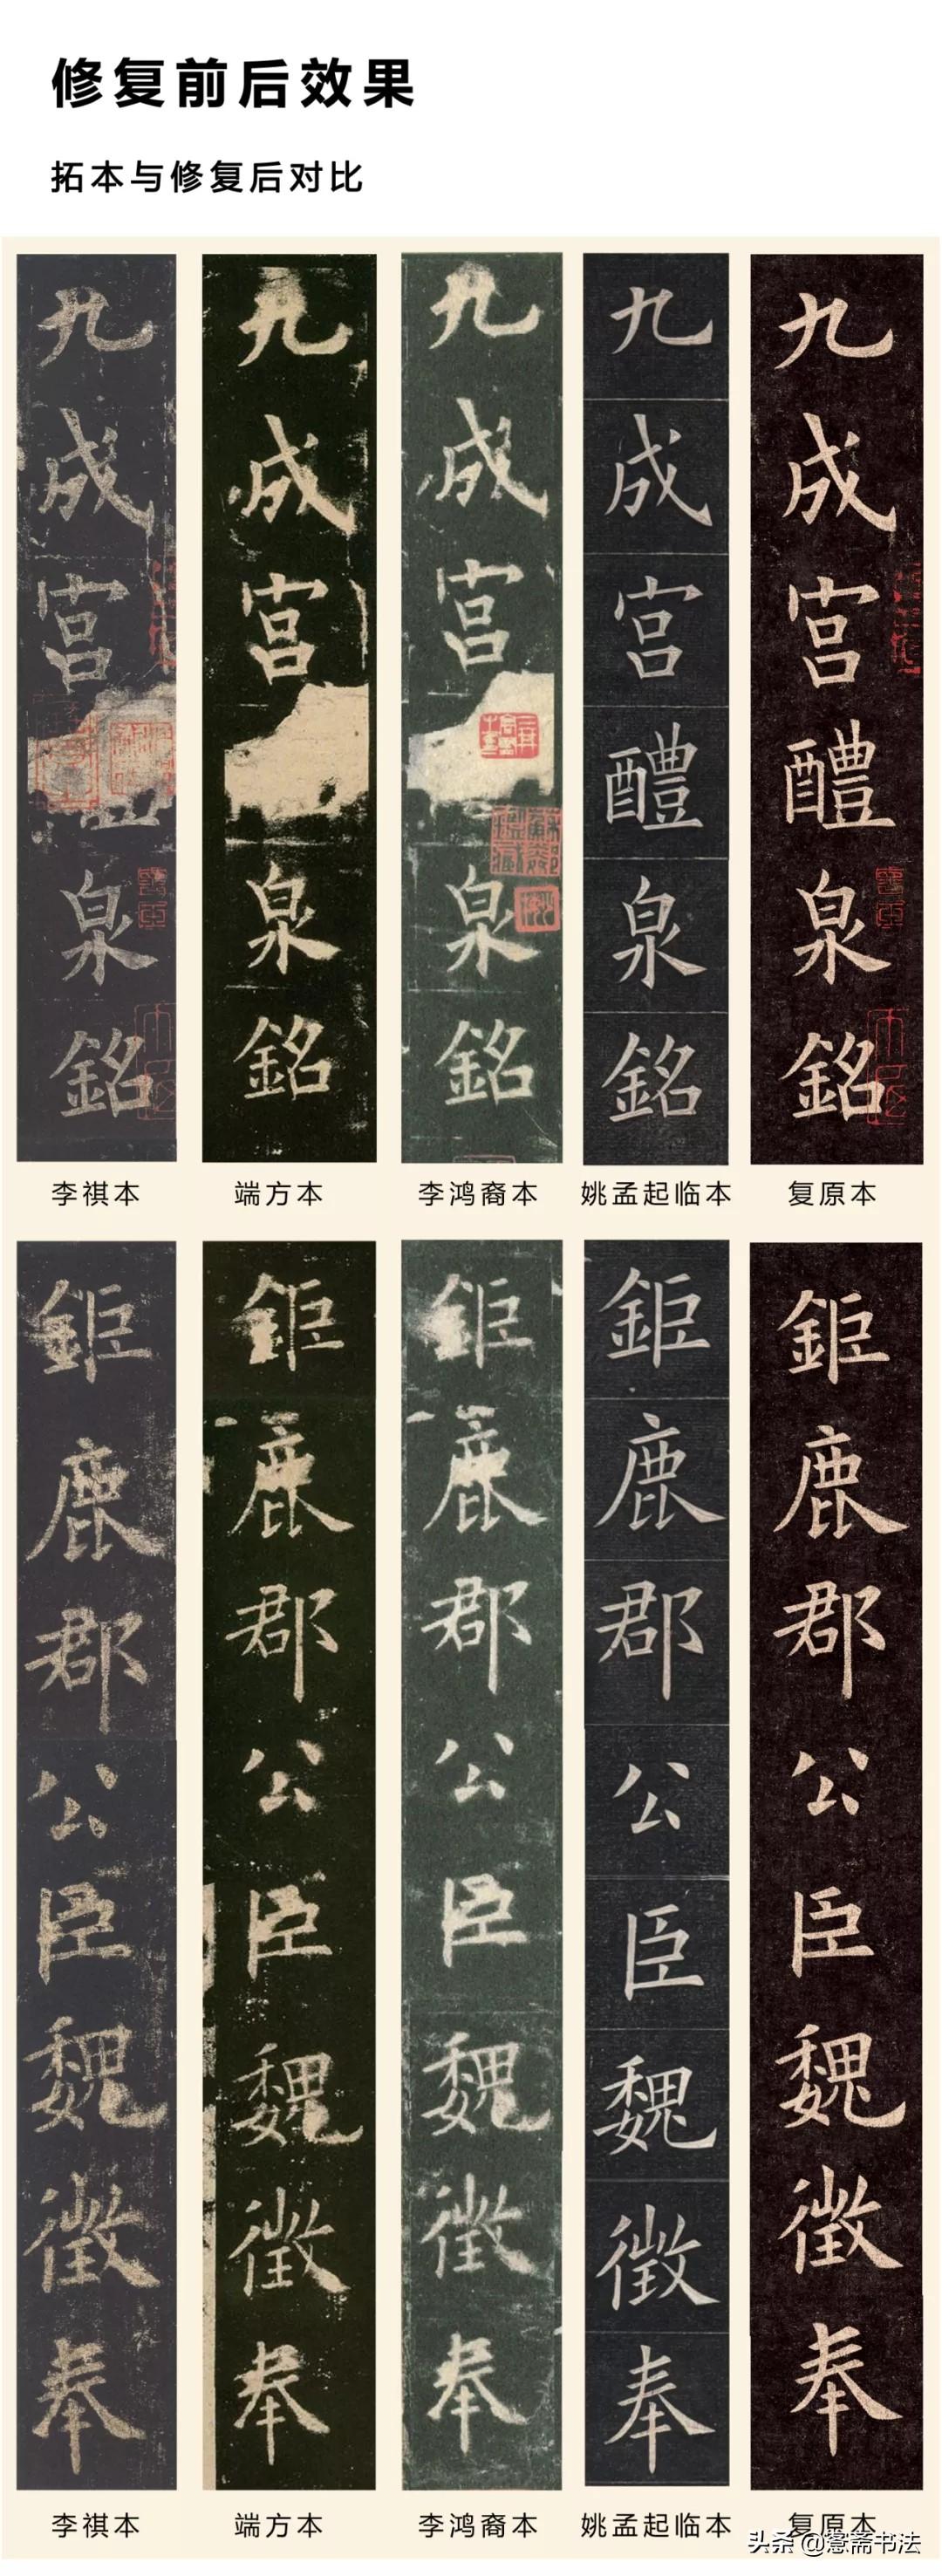 修复前后效果
拓本与修复后对比
九成宮泉銘
九成宮泉銘
九成宮泉銘
九成宮醴泉銘
九成宮醴泉銘
李祺本
端方本
李鸿裔本
姚孟起临本
复原本
鉅鹿郡公臣魏徵奉
鉅鹿郡公臣魏徵奉
鉅鹿郡公臣魏徵奉
鉅鹿郡公臣魏徵奉
鉅鹿郡公臣魏徵奉
李祺本
端方本
李鸿裔本
姚孟起临本
复原本
头条 @斋书法